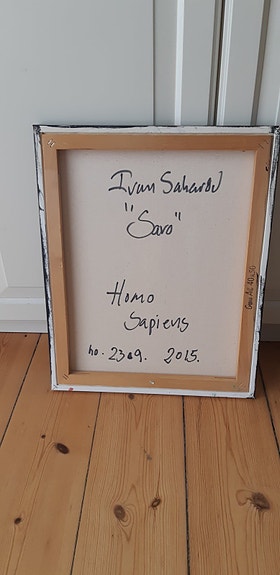 Ivan Saharov
"Savo"
Homo
Sapiens
no. 2309. 2015.